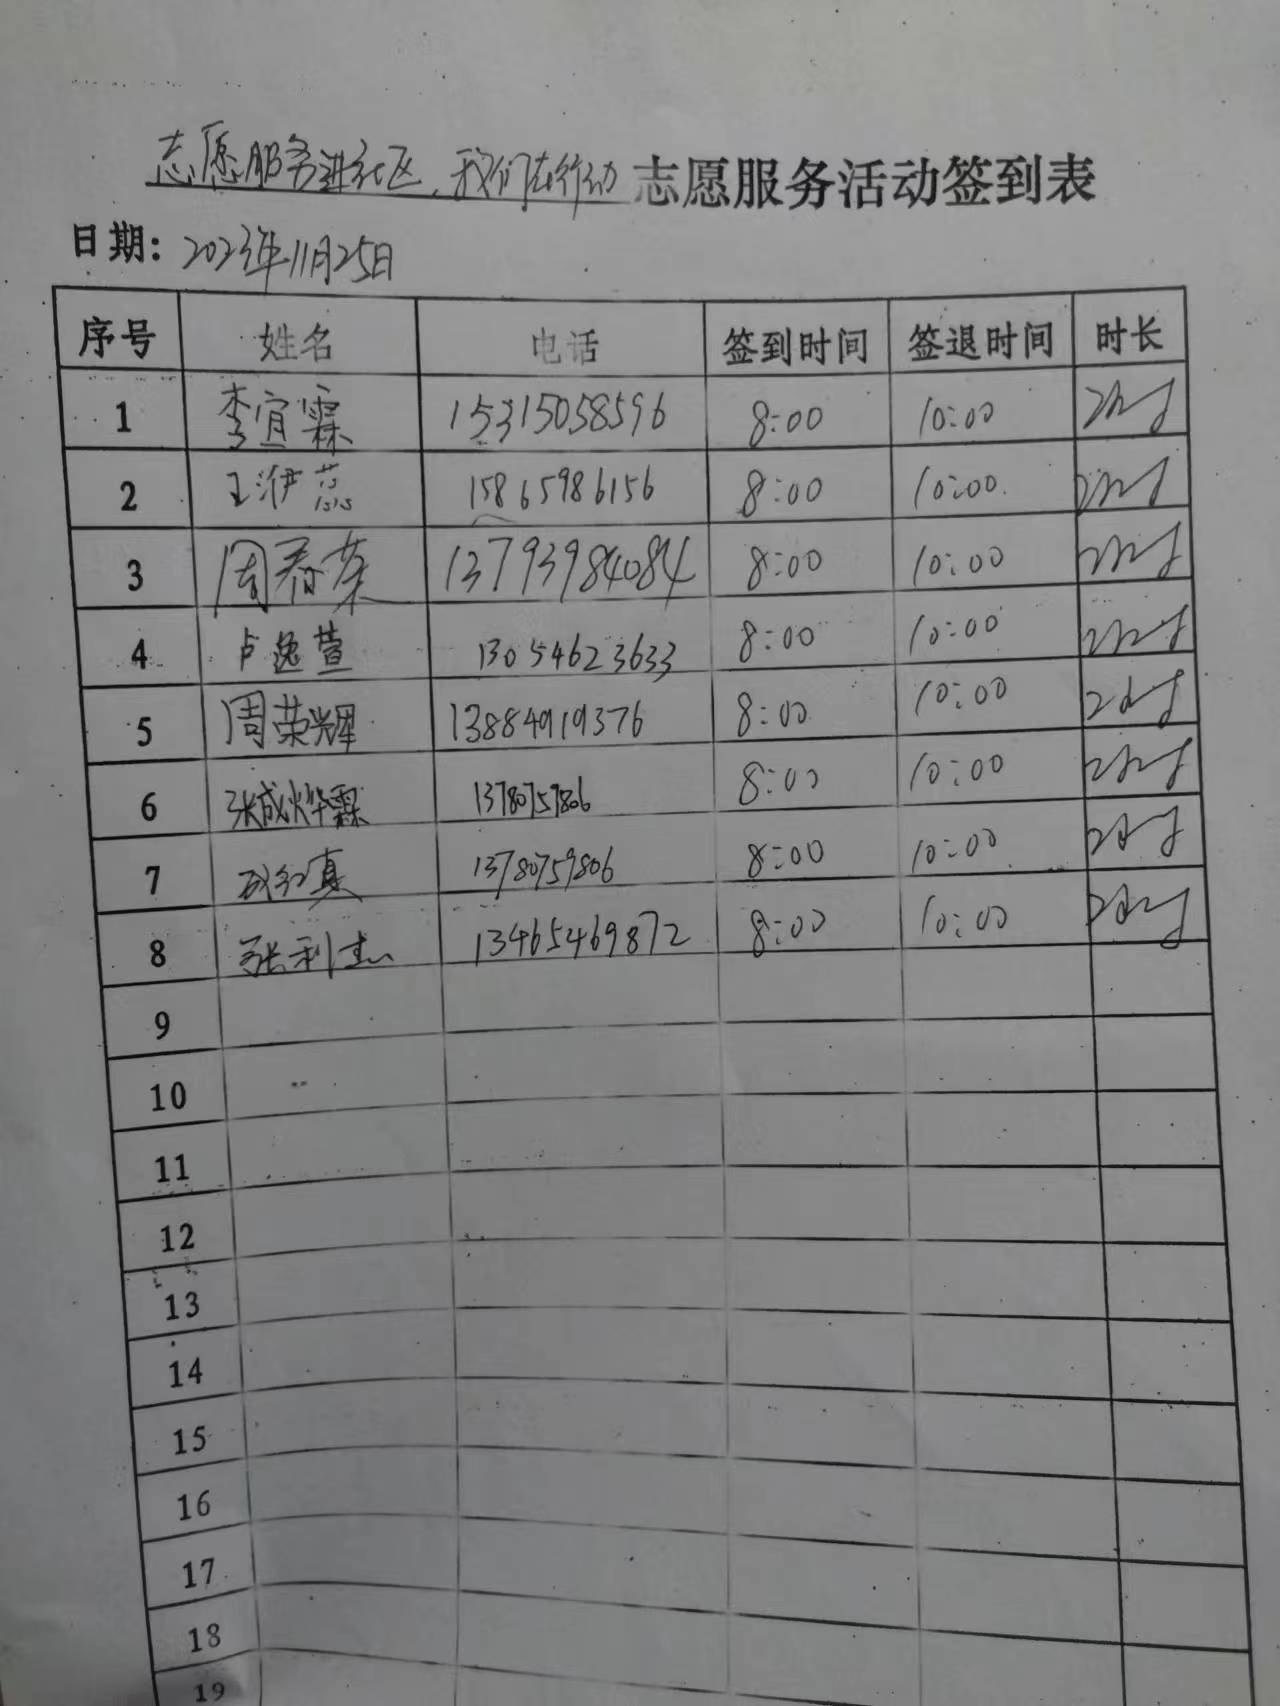 志愿服务进社区,我们在行动 志愿服务活动签到表
日期: 2023年11月25日
序号 姓名 电话 签到时间 签退时间 时长
1 李宜霖 15315058596 8:00 10:00
2 王浠蕊 15865986156 8:00 10:00
3 周春荣 13793984084 8:00 10:00
4 卢逸萱 13054623633 8:00 10:00
5 周荣辉 13884919376 8:00 10:00
6 张成烨霖 13780759806 8:00 10:00
7 13780759806 8:00 10:00
8 张利 13465469872 8:00 10:00
9
10
11
12
13
14
15
16
17
18
19